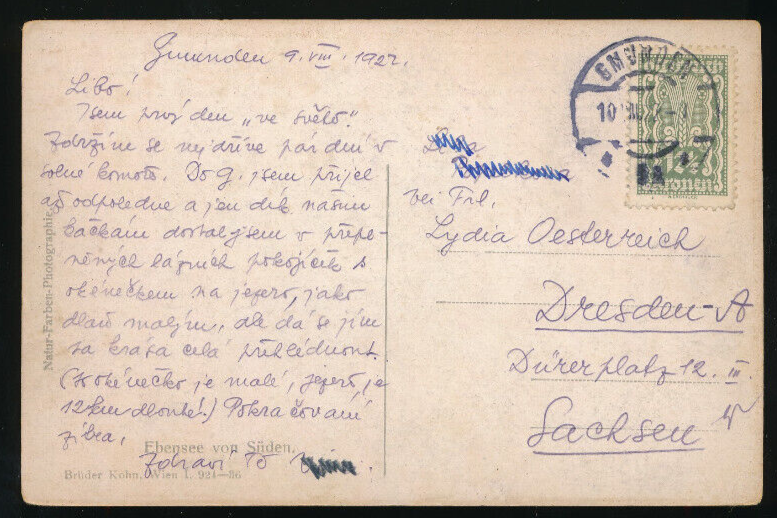 Gmunden 9. VIII. 1922.
Libo!
Jsem prvý den „ve světě“.
Zdržím se nejdříve pár dní v
solné komoře. Do G. jsem přijel
až odpoledne a jen dík našim
dostal jsem v přepl-
něných lázních pokojíček s
okénečkem na jezero, jako
dlaň malým, ale dá se jím
ta krása celá přehlédnout.
(To okénečko je malé, jezero je
12 km dlouhé!) Pokračování
zítra,
Zdraví Tě
bei Frl.
Lydia Oesterreich
Dresden-A
Dürerplatz 12. III.
Sachsen
GMUNDEN
10
Natur-Farben-Photographie
Ebensee von Süden.
Brüder Kohn, Wien I. 924—86